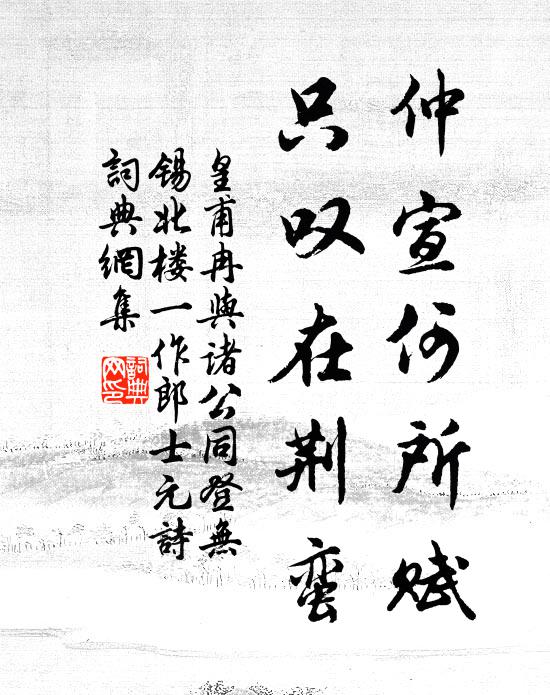 仲宣何所賦
只叹在荆蛮
皇甫冉與诸公同登無
锡北楼一作郎士元詩
詞典網集
詞典
网印